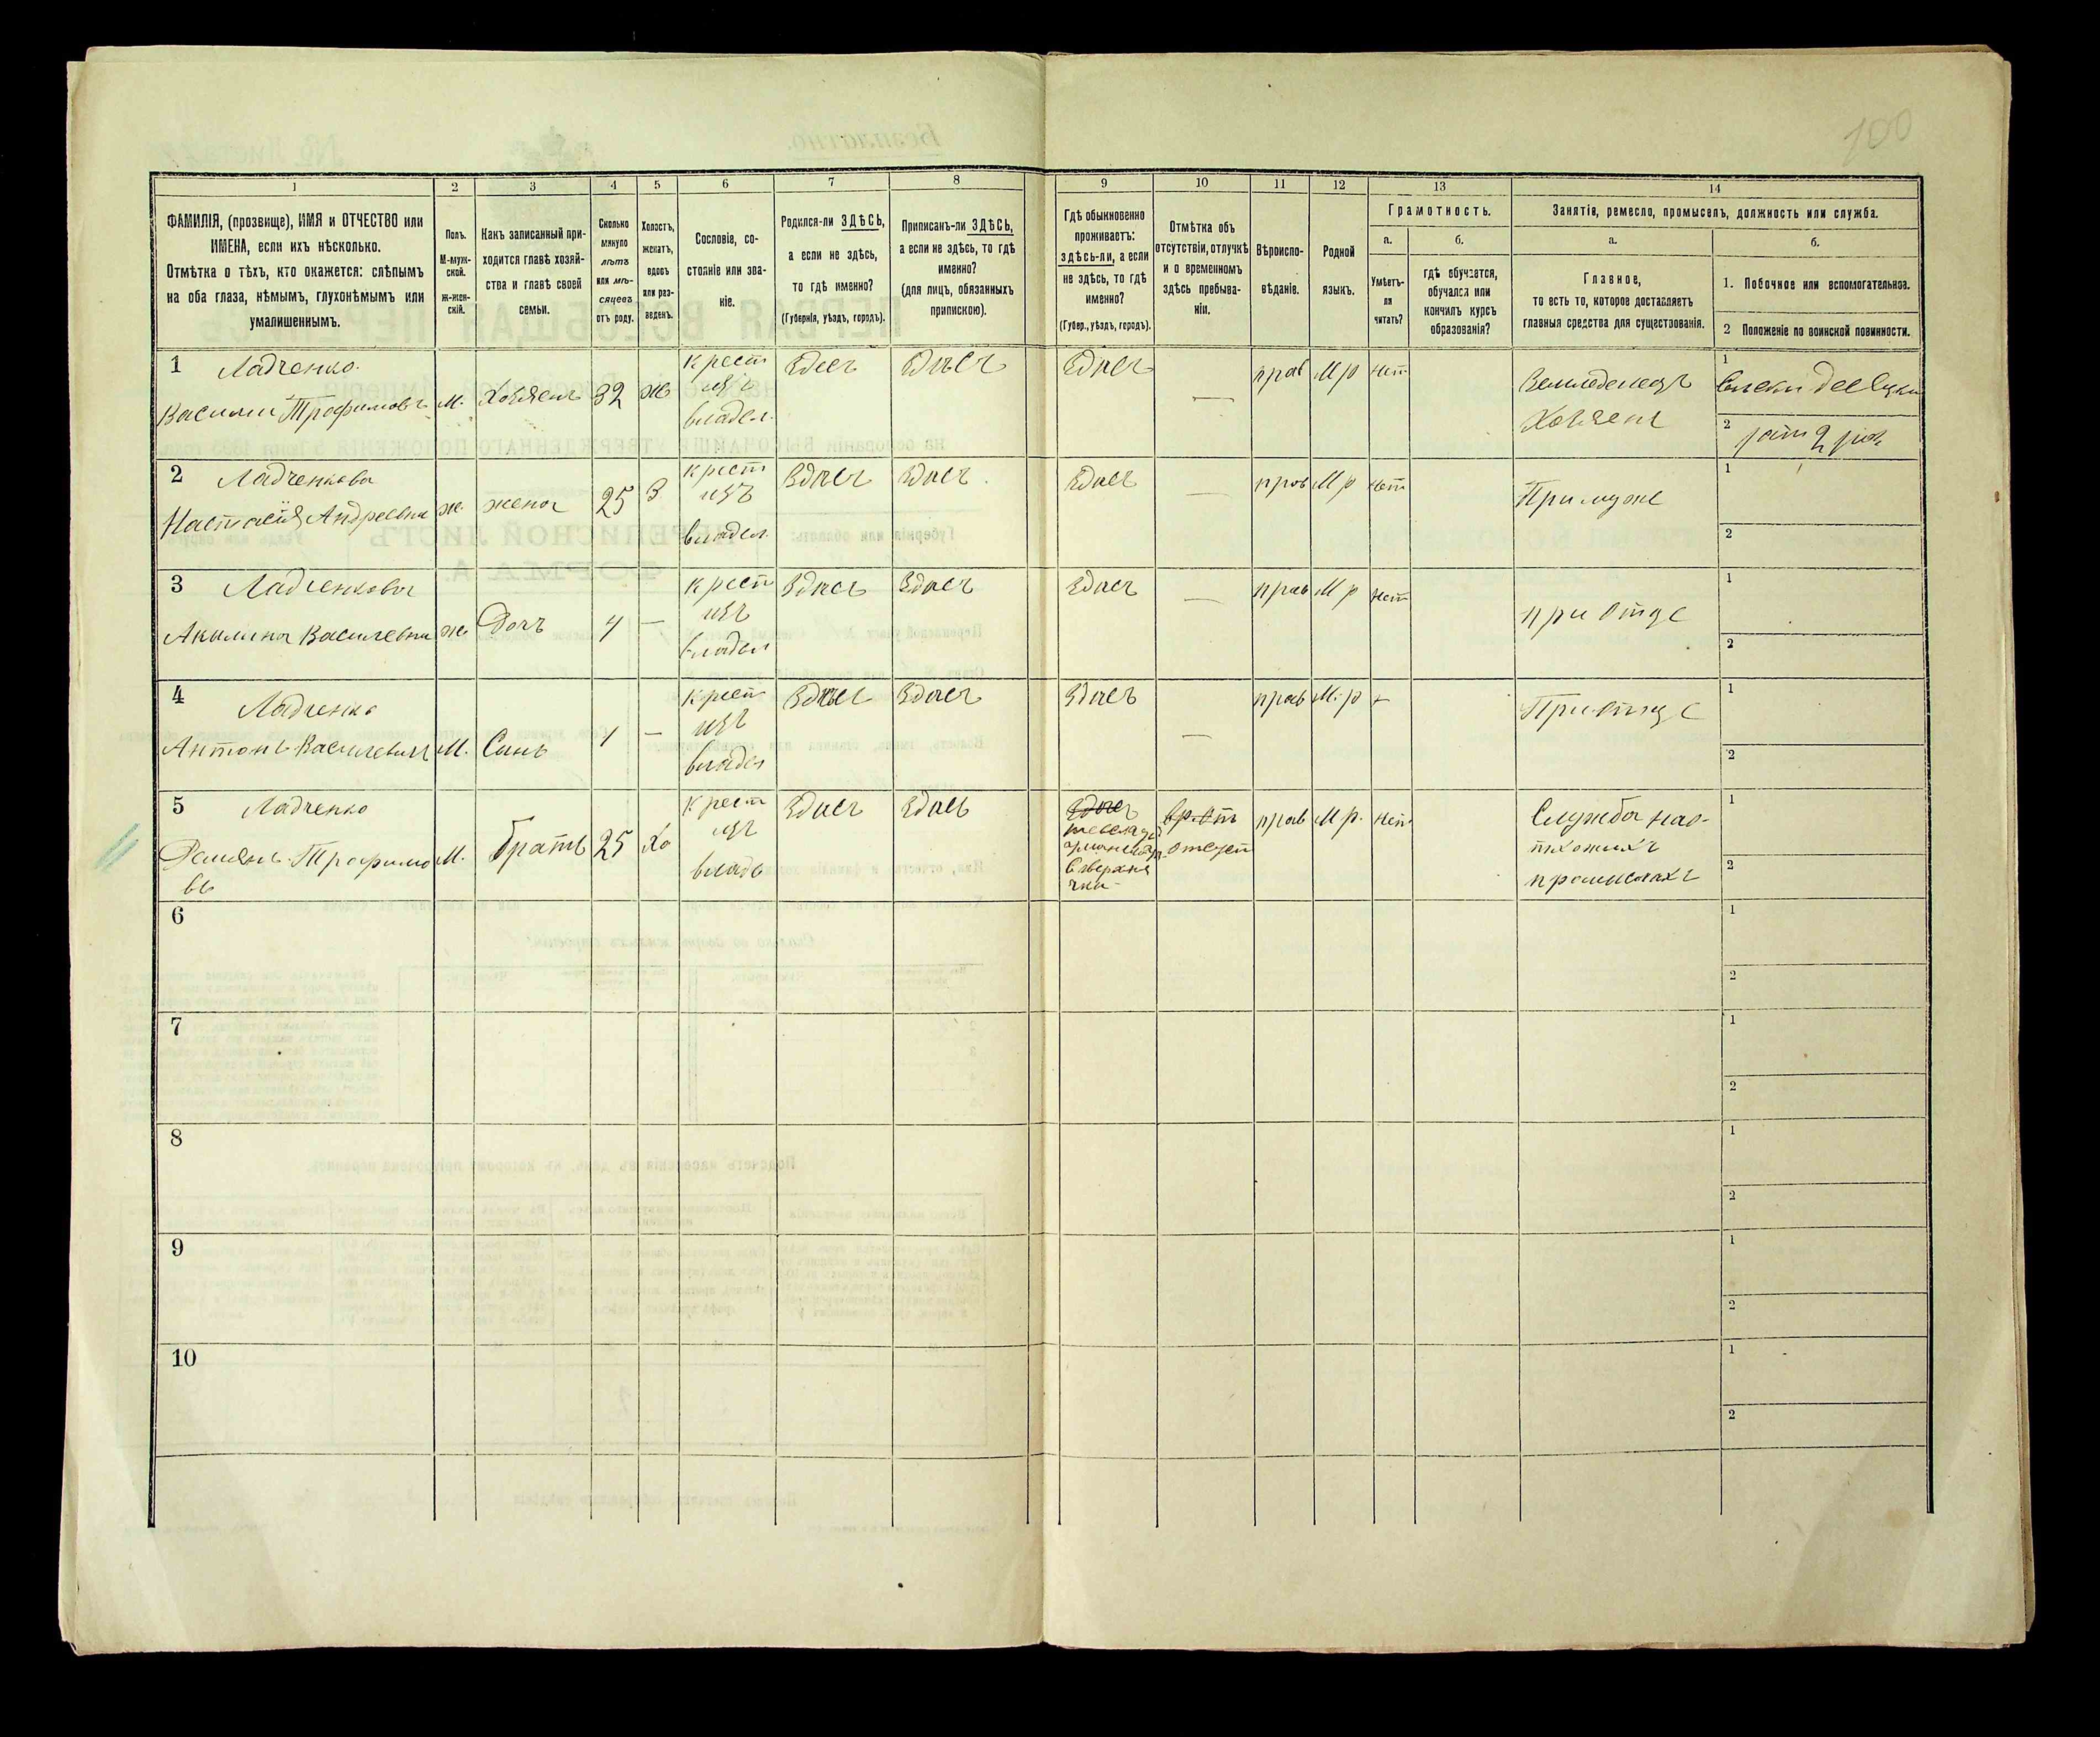 100
1 2 3 4 5 6 7 8 9 10 11 12 13 14
ФАМИЛІЯ, (прозвище), ИМЯ и ОТЧЕСТВО или
ИМЕНА, если ихъ нѣсколько.
Отмѣтка о тѣхъ, кто окажется: слѣпымъ
на оба глаза, нѣмымъ, глухонѣмымъ или
умалишеннымъ.
Полъ.
М-муж-
ской.
ж-жен-
скій.
Какъ записанный при-
ходится главѣ хозяй-
ства и главѣ своей
семьи.
Сколько
минуло
лѣтъ
или мѣ-
сяцевъ
отъ роду.
Холостъ,
женатъ,
вдовъ
или раз-
веденъ.
Сословіе, со-
стояніе или зва-
ніе.
Родился-ли ЗДѢСЬ,
а если не здѣсь,
то гдѣ именно?
(Губернія, уѣздъ, городъ).
Приписанъ-ли ЗДѢСЬ,
а если не здѣсь, то гдѣ
именно?
(для лицъ, обязанныхъ
припискою).
Гдѣ обыкновенно
проживаетъ:
здѣсь-ли, а если
не здѣсь, то гдѣ
именно?
(Губер., уѣздъ, городъ).
Отмѣтка объ
отсутствіи, отлучкѣ
и о временномъ
здѣсь пребыва-
ніи.
Вѣроиспо-
вѣданіе.
Родной
языкъ.
Грамотность.
а.
Умѣетъ-
ли
читать?
б.
гдѣ обучается,
обучался или
кончилъ курсъ
образованія?
Занятіе, ремесло, промыселъ, должность или служба.
а.
Главное,
то есть то, которое доставляетъ
главныя средства для существованія.
б.
1. Побочное или вспомогательное.
2 Положеніе по воинской повинности.
1 Ладченко
Василий Трофимовъ М. Хозяенъ 32 ж
крест
изъ
владел.
Здесъ Здѣсъ Здпсъ — прав М р нет
Земледелецъ
Хозяенъ
1
2
2 Ладченкова
Настасія Андреевна ж жена 25 З
крест
изъ
владел.
Здпсъ Здпсъ Здпсъ — прав М р нет
При муже
1
2
3 Ладченкова
Акилина Василевна ж Дочъ 4 —
крест
изъ
владел
Здпсъ Здпсъ Здпсъ — прав М р нет
при Отце
1
2
4 Ладченко
Антонъ Василевич М. Синъ 1 —
крест
изъ
владел
Здпсъ Здпсъ Здпсъ — прав М. р
При отце
1
2
5 Ладченко
Демянъ Трофимо
въ
М. братъ 25 Хо
крест
изъ
владе
Здпсъ Здпсъ Здпсъ
прав М р. нет
Служба на о-
тхожихъ
промислахъ
1
2
6 1
2
7 1
2
8 1
2
9 1
2
10 1
2